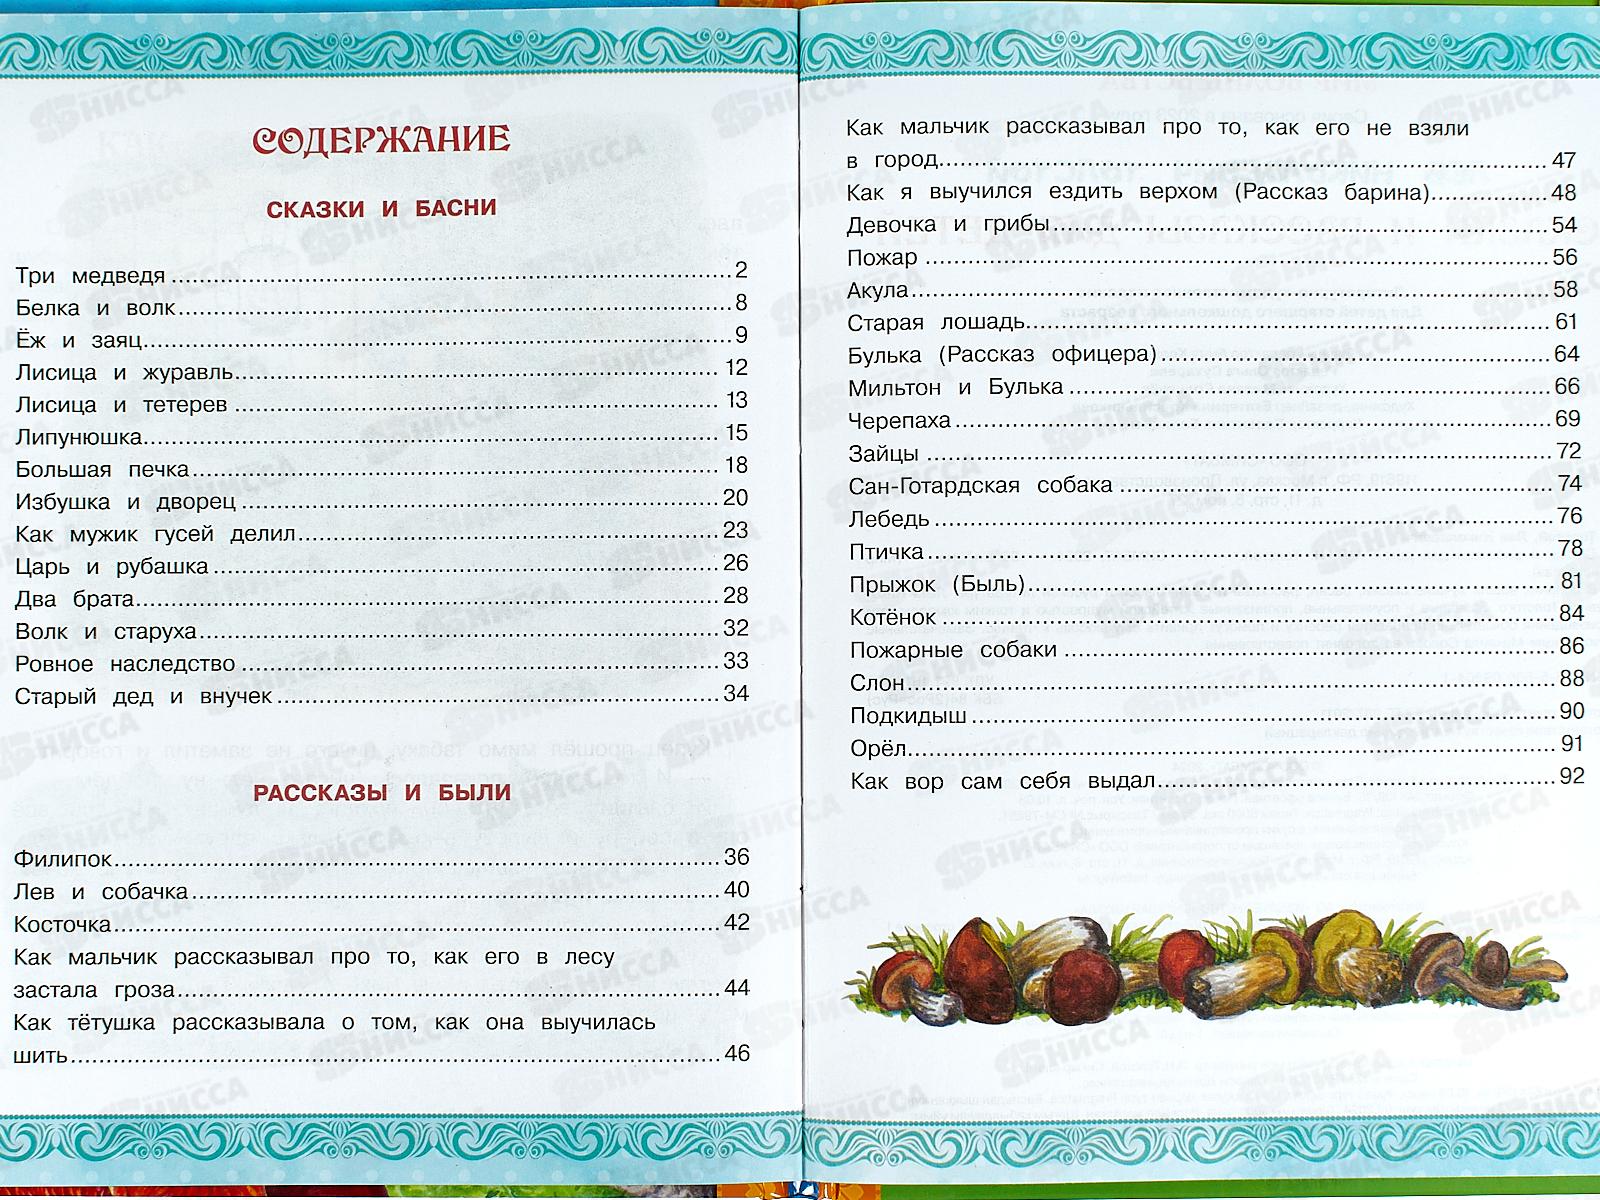 СОДЕРЖАНИЕ
СКАЗКИ И БАСНИ
Три медведя 2
Белка и волк 8
Ёж и заяц 9
Лисица и журавль 12
Лисица и тетерев 13
Липунюшка 15
Большая печка 18
Избушка и дворец 20
Как мужик гусей делил 23
Царь и рубашка 26
Два брата 28
Волк и старуха 32
Ровное наследство 33
Старый дед и внучек 34
РАССКАЗЫ И БЫЛИ
Филипок 36
Лев и собачка 40
Косточка 42
Как мальчик рассказывал про то, как его в лесу
застала гроза 44
Как тётушка рассказывала о том, как она выучилась
шить 46
Как мальчик рассказывал про то, как его не взяли
в город 47
Как я выучился ездить верхом (Рассказ барина) 48
Девочка и грибы 54
Пожар 56
Акула 58
Старая лошадь 61
Булька (Рассказ офицера) 64
Мильтон и Булька 66
Черепаха 69
Зайцы 72
Сан-Готардская собака 74
Лебедь 76
Птичка 78
Прыжок (Быль) 81
Котёнок 84
Пожарные собаки 86
Слон 88
Подкидыш 90
Орёл 91
Как вор сам себя выдал 92